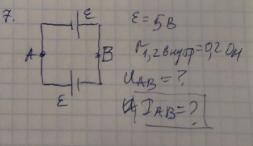 7.
ε
A
B
ε
ε = 5В
r₁,₂внутр=0,2 Ом
U_AB = ?
I_AB = ?